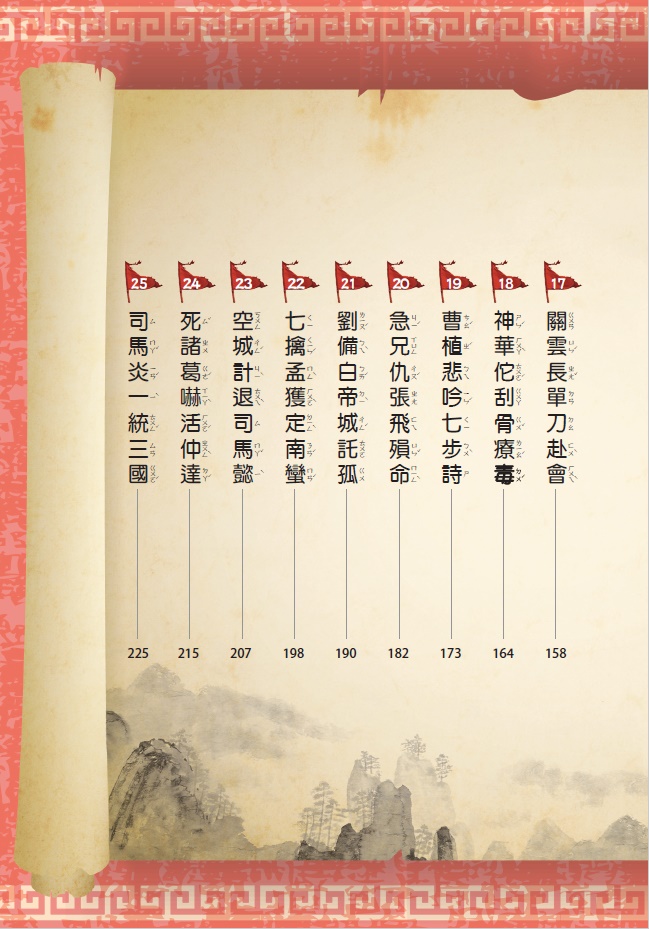 17 關雲長單刀赴會 158
18 神華佗刮骨療毒 164
19 曹植悲吟七步詩 173
20 急兄仇張飛殞命 182
21 劉備白帝城託孤 190
22 七擒孟獲定南蠻 198
23 空城計退司馬懿 207
24 死諸葛嚇活仲達 215
25 司馬炎一統三國 225